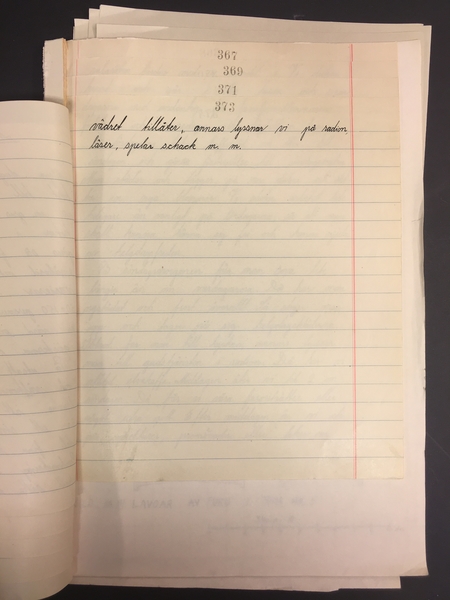 367
369
371
373
vädret tillåter, annars lyssnar vi på radion,
läser, spelar schack m. m.